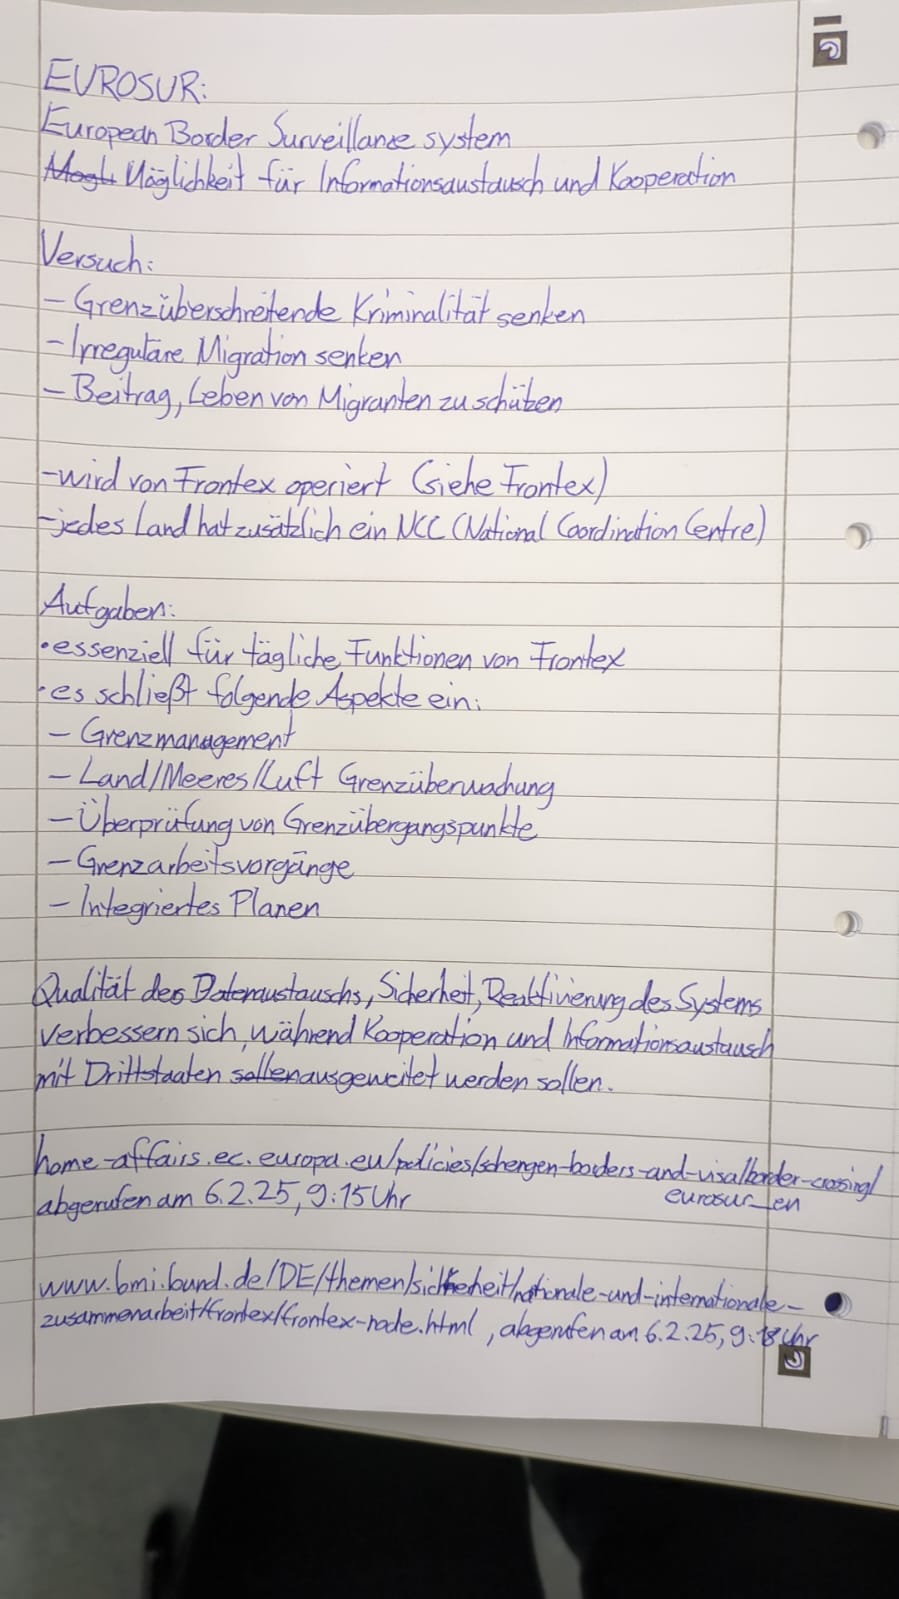 EUROSUR:
European Border Surveillance system
Mögl. Möglichkeit für Informationsaustausch und Kooperation
Versuch:
- Grenzüberschreitende Kriminalität senken
- Irreguläre Migration senken
- Beitrag, Leben von Migranten zu schützen
- wird von Frontex operiert (siehe Frontex)
- jedes Land hat zusätzlich ein NCC (National Coordination Centre)
Aufgaben:
• essenziell für tägliche Funktionen von Frontex
• es schließt folgende Aspekte ein:
- Grenzmanagement
- Land/Meeres/Luft Grenzüberwachung
- Überprüfung von Grenzübergangspunkte
- Grenzarbeitsvorgänge
- Integriertes Planen
Qualität des Datenaustauschs, Sicherheit, Reaktivierung des Systems
verbessern sich, während Kooperation und Informationsaustausch
mit Drittstaaten sollen ausgeweitet werden sollen.
home-affairs.ec.europa.eu/policies/schengen-borders-and-visa/border-crossing/
eurosur_en
abgerufen am 6.2.25, 9:15 Uhr
www.bmi.bund.de/DE/themen/sicherheit/nationale-und-internationale-
zusammenarbeit/frontex/frontex-node.html, abgerufen am 6.2.25, 9:18 Uhr